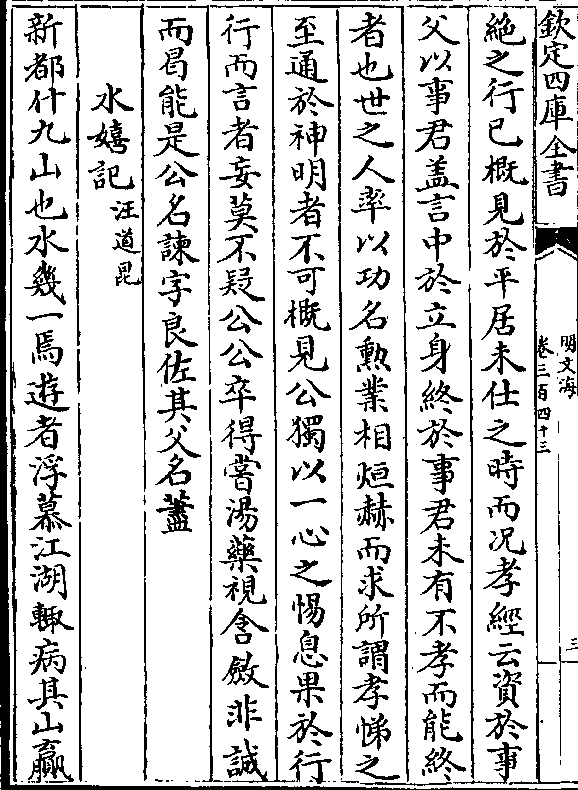 欽定四庫全書
明文海
卷三百四十三
三
絶之行已概見於平居未仕之時而况孝經云資於事
父以事君盖言中於立身終於事君未有不孝而能終
者也世之人率以功名勲業相烜赫而求所謂孝悌之
至通於神明者不可概見公獨以一心之惕息果於行
行而言者妄莫不疑公公卒得嘗湯藥視含斂非誠
而曷能是公名諫字良佐其父名藎
水嬉記汪道昆
新都什九山也水幾一焉遊者浮慕江湖輙病其山羸